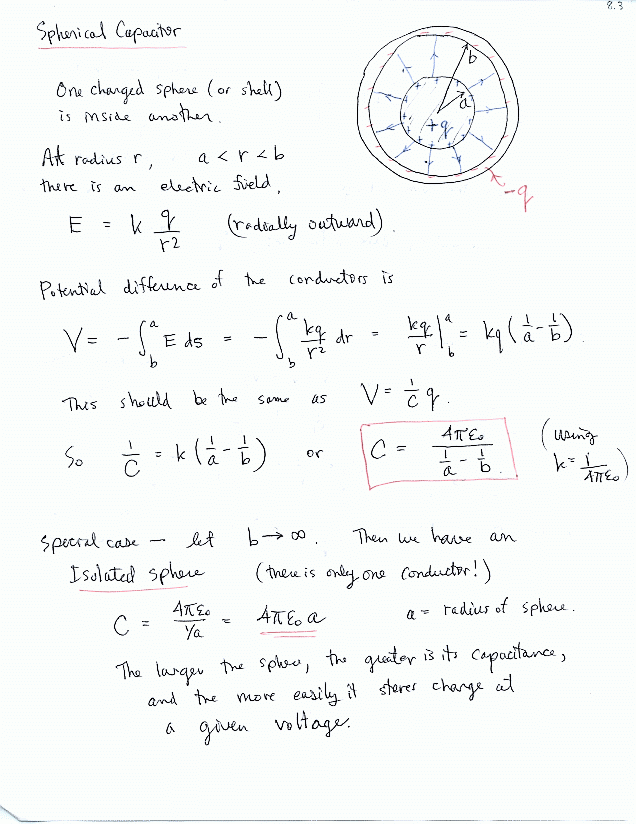 8.3
Spherical Capacitor
b
a
+q
-q
One charged sphere (or shell)
is inside another.
At radius r, a < r < b
there is an electric field,
E = k q/r² (radially outward).
Potential difference of the conductors is
V = -∫_b^a E ds = -∫_b^a kq/r² dr = kq/r |_b^a = kq(1/a - 1/b)
This should be the same as V = 1/C q.
So 1/C = k(1/a - 1/b) or C = 4πε₀/(1/a - 1/b) (using k = 1/4πε₀)
Special case — let b → ∞. Then we have an
Isolated sphere (there is only one conductor!)
C = 4πε₀/(1/a) = 4πε₀a a = radius of sphere.
The larger the sphere, the greater is its capacitance,
and the more easily it stores charge at
a given voltage.